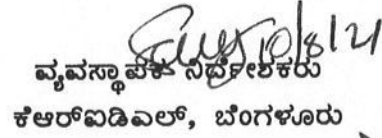 10/8/21
ವ್ಯವಸ್ಥಾಪಕ ನಿರ್ದೇಶಕರು
ಕೆಆರ್‌ಐಡಿಎಲ್, ಬೆಂಗಳೂರು